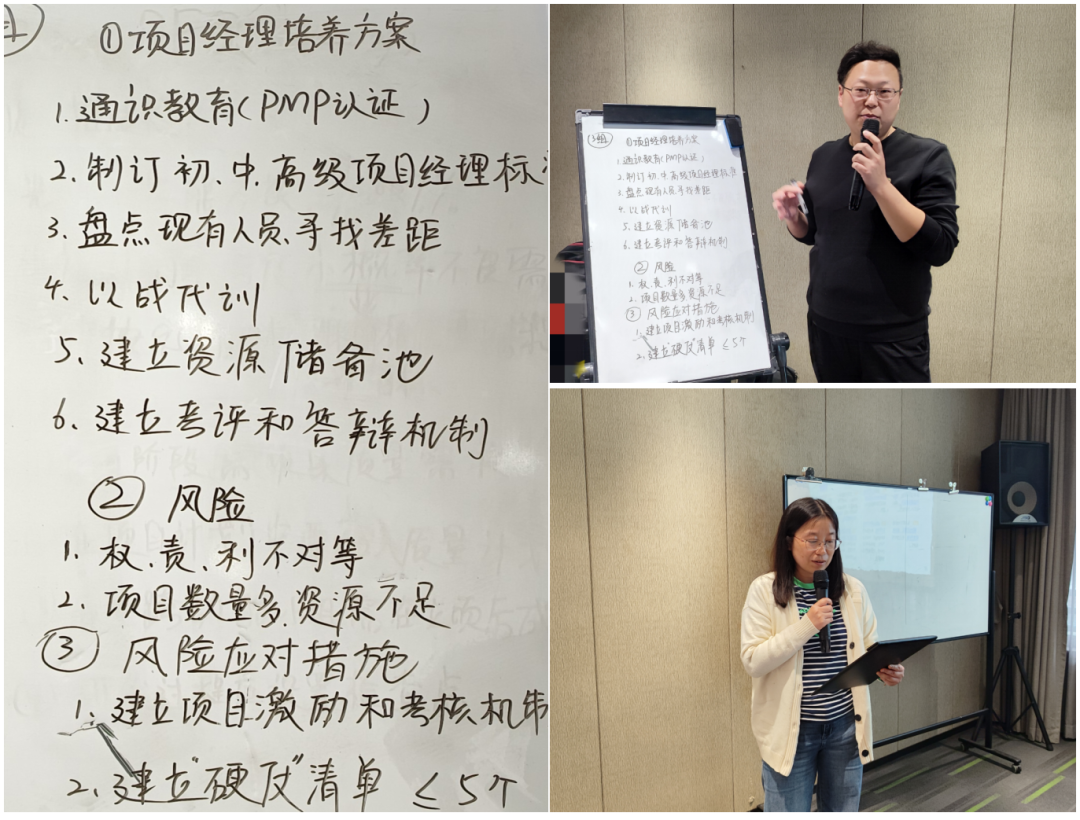 ①项目经理培养方案
1.通识教育(PMP认证)
2.制订初、中、高级项目经理标
3.盘点现有人员、寻找差距
4.以战代训
5.建立资源储备池
6.建立考评和答辩机制
②风险
1.权、责、利不对等
2.项目数量多,资源不足
③风险应对措施
1.建立项目激励和考核机制
2.建立"硬仗"清单 ≤5个
3组
①项目经理培养方案
1.通识教育(PMP认证)
2.制订初、中、高级项目经理标准
3.盘点现有人员、寻找差距
4.以战代训
5.建立资源储备池
6.建立考评和答辩机制
②风险
1.权、责、利不对等
2.项目数量多 资源不足
③风险应对措施
1.建立项目激励和考核机制
2.建立"硬仗"清单 ≤5个